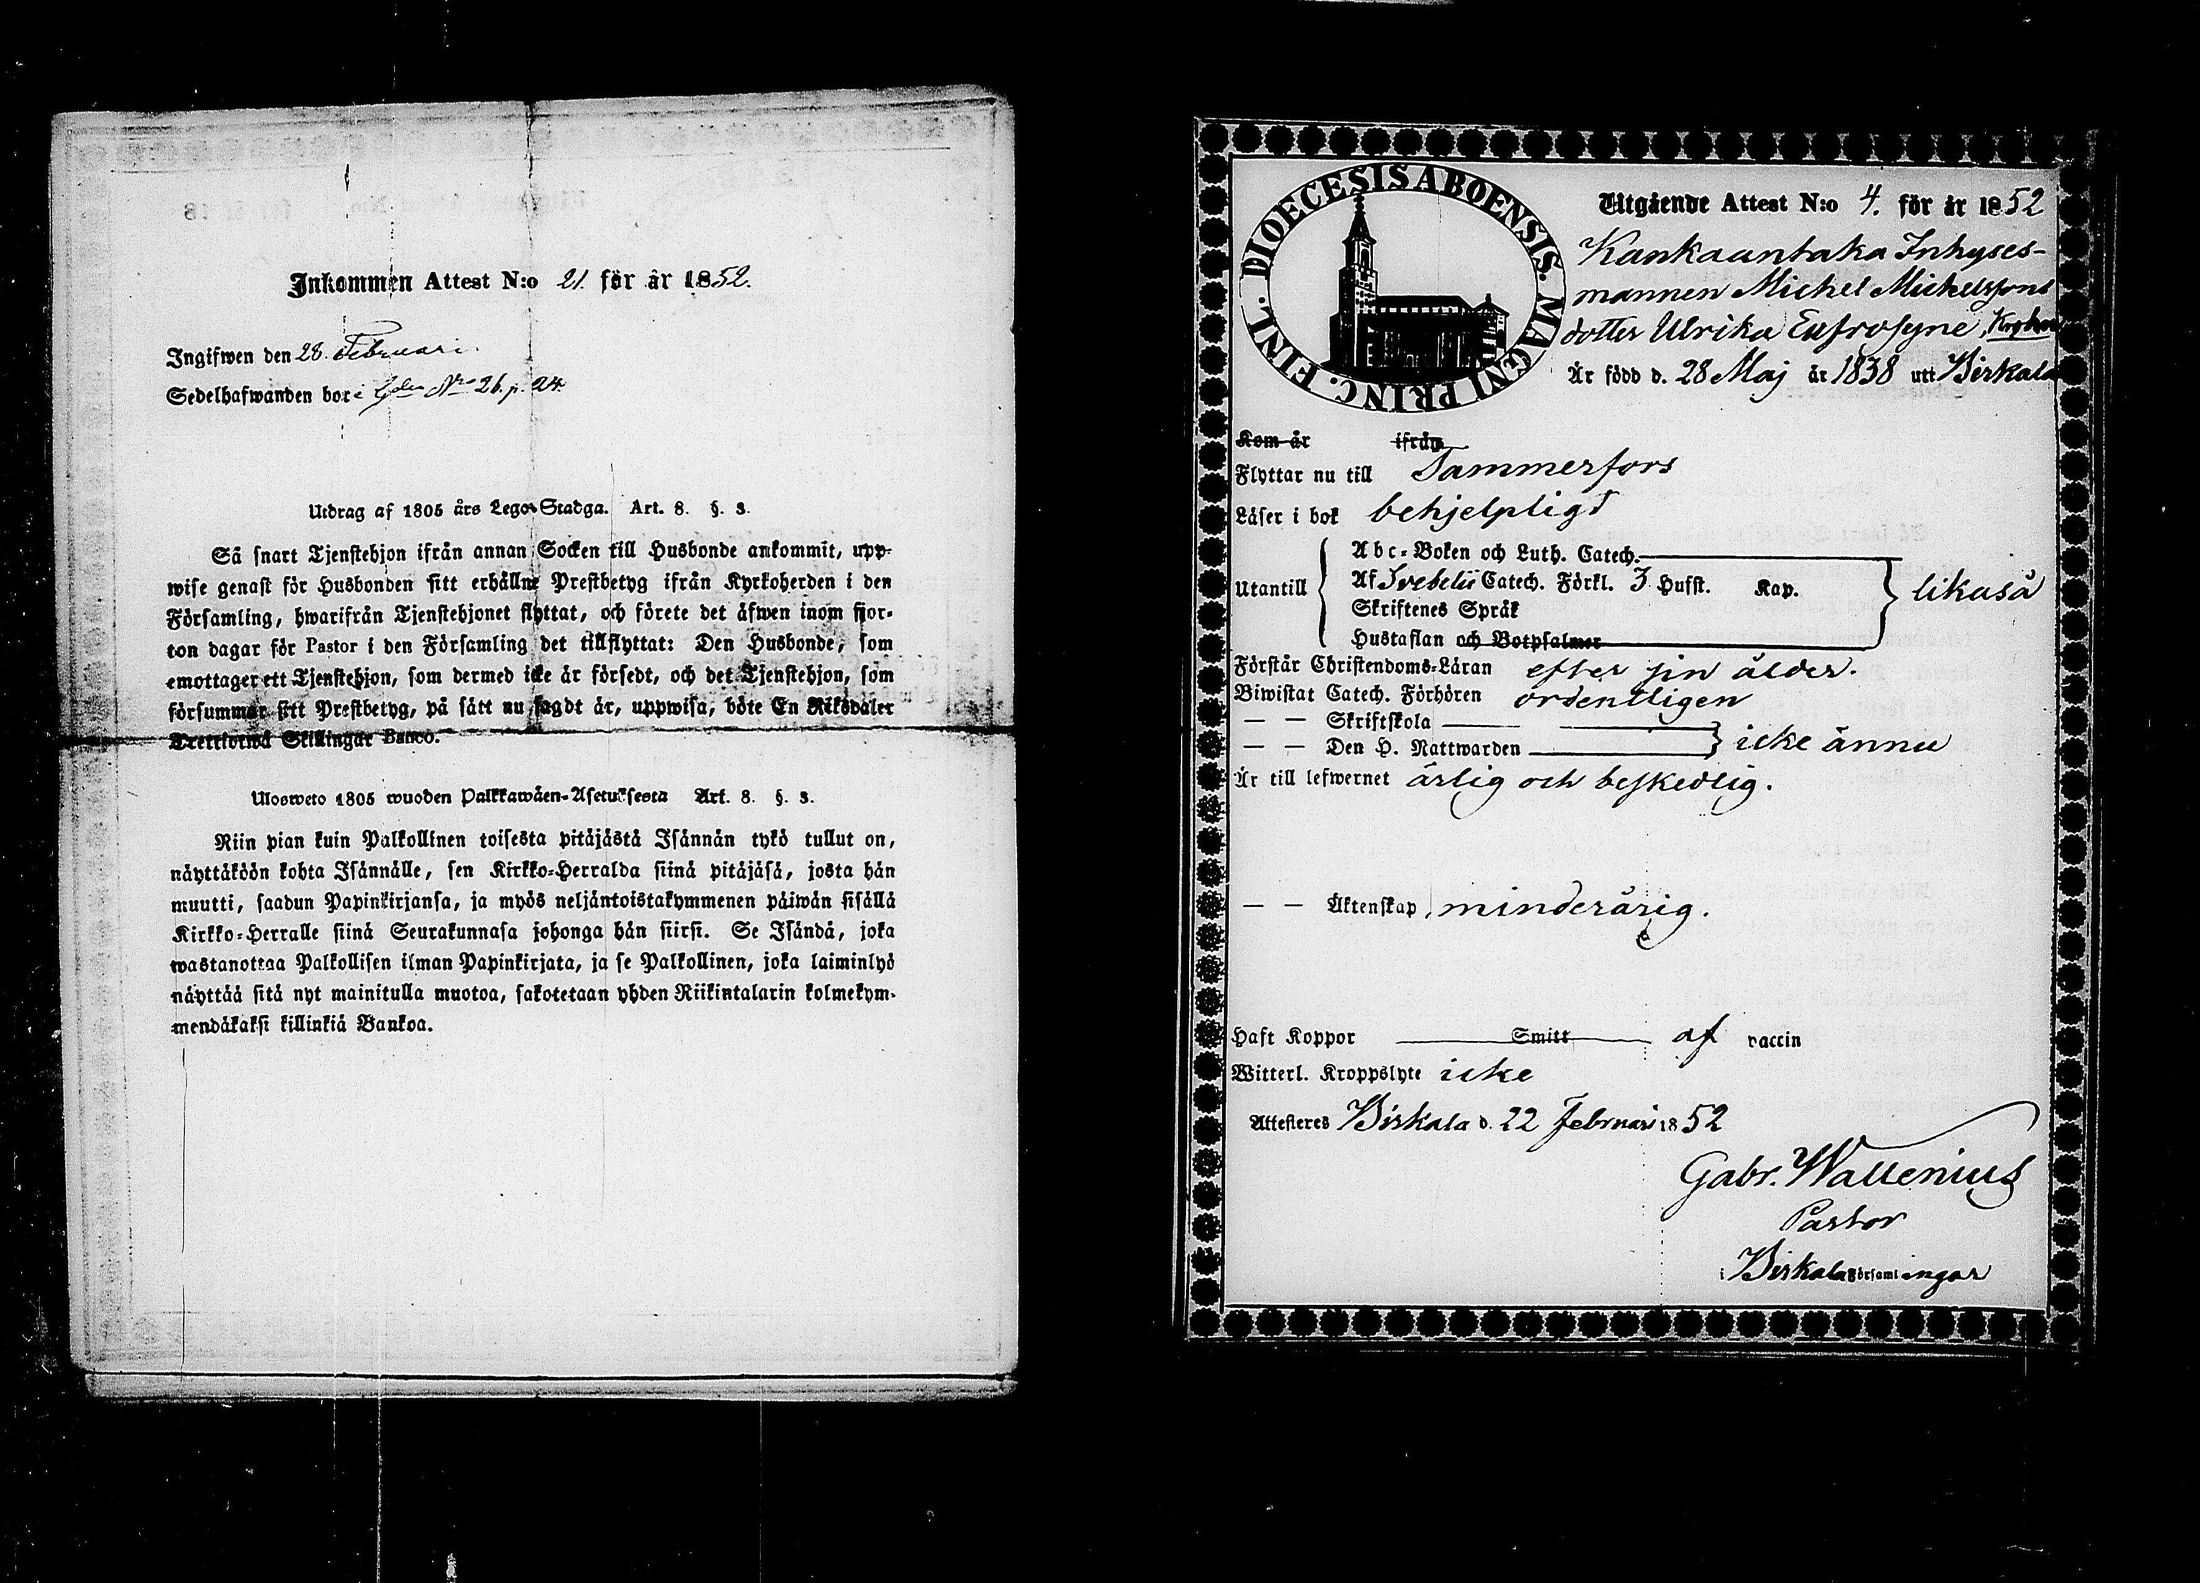 Inkommen Attest N:o 21. för år 1852.
Ingifwen den 28. Februari.
Sedelhafwanden bor i Gden Nro 26. p. 24.
Utdrag af 1805 års Lego-Stadga. Art. 8. §. 3.
Så snart Tjenstehjon ifrån annan Socken till Husbonde ankommit, upp-
wise genast för Husbonden sitt erhållne Prestbetyg ifrån Kyrkoherden i den
Församling, hwarifrån Tjenstehjonet flyttat, och förete det äfwen inom fjor-
ton dagar för Pastor i den Församling det tillflyttat: Den Husbonde, som
emottager ett Tjenstehjon, som dermed icke är försedt, och det Tjenstehjon, som
försummar sitt Prestbetyg, på sätt nu sagdt är, uppwisa, böte En Riksdaler
Trettiotwå Skillingar Banco.
Ulosweto 1805 wuoden Palkkawäen-Asetuksesta Art. 8. §. 3.
Niin pian kuin Palkollinen toisesta pitäjästä Isännän tykö tullut on,
näyttäköön kohta Isännälle, sen Kirkko-Herralda siinä pitäjäsä, josta hän
muutti, saadun Papinkirjansa, ja myös neljäntoistakymmenen päiwän sisällä
Kirkko-Herralle siinä Seurakunnasa johonga hän siirsi. Se Isändä, joka
wastanottaa Palkollisen ilman Papinkirjata, ja se Palkollinen, joka laiminlyö
näyttää sitä nyt mainitulla muotoa, sakotetaan yhden Riikintalarin kolmekym-
mendäkaksi killinkiä Bankoa.
DIOECESIS ABOENSIS. MAGNI PRINC. FINL.
Utgående Attest N:o 4. för år 1852
Kankaantaka Inhyses-
mannen Michel Michelssons
dotter Ulrika Eufrosyne,
Är född d. 28 Maj år 1838 uti Birkala
Kom år ifrån
Flyttar nu till Tammerfors
Läser i bok behjelpligt
Utantill
Abc-Boken och Luth. Catech.
Af Svebelii Catech. Förkl. 3 Hufst. Kap.
Skriftenes Språk
Hustaflan och Botpsalmer
likaså
Förstår Christendoms-Läran efter sin ålder.
Biwistat Catech. Förhören ordentligen
— — Skriftskola
— — Den H. Nattwarden icke ännu
Är till lefwernet ärlig och beskedlig.
— — Äktenskap minderårig.
Haft Koppor Smitt af vaccin
Witterl. Kroppslyte icke
Attesteres Birkala d. 22 Februari 1852
Gabr. Wallenius
Pastor
i Birkala Församlingar